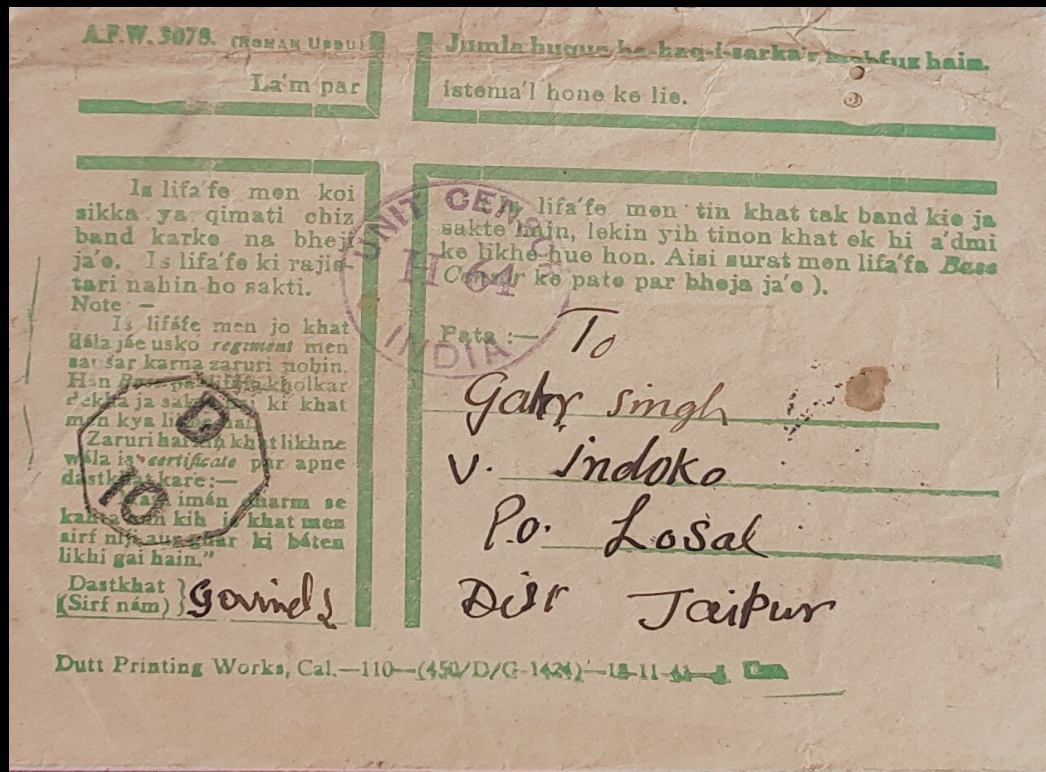 A.F.W. 3078. (ROMAN URDU)
La'm par
Jumla huquq ba-haq-i-sarka'r mahfuz hain.
istema'l hone ke lie.
Is lifa'fe men koi
sikka ya qimati chiz
band karke na bheji
ja'e. Is lifa'fe ki rajis-
tari nahin ho sakti.
Note —
Is lifáfe men jo khat
dála jáe usko regiment men
sansar karna zaruri nahin.
Hán Base par lifáfa kholkar
dekha ja sakta hai ki khat
men kya likha hai.
Zaruri hai kih khat likhne
wála is certificate par apne
dastkhat kare:—
imán dharm se
kahta hun kih is khat men
sirf niji aur ghar ki báten
likhi gai hain."
Dastkhat
(Sirf nám) } Govind S
lifa'fe men tin khat tak band kie ja
sakte hain, lekin yih tinon khat ek hi a'dmi
ke likhe hue hon. Aisi surat men lifa'fa Base
Censor ke pate par bheja ja'e ).
Pata :— To
singh
V. indoko
P.o. Losal
Disr Jaipur
UNIT CENSOR
H 64
INDIA
D
10
Dutt Printing Works, Cal.—110—(450/D/G-1424)—18-11